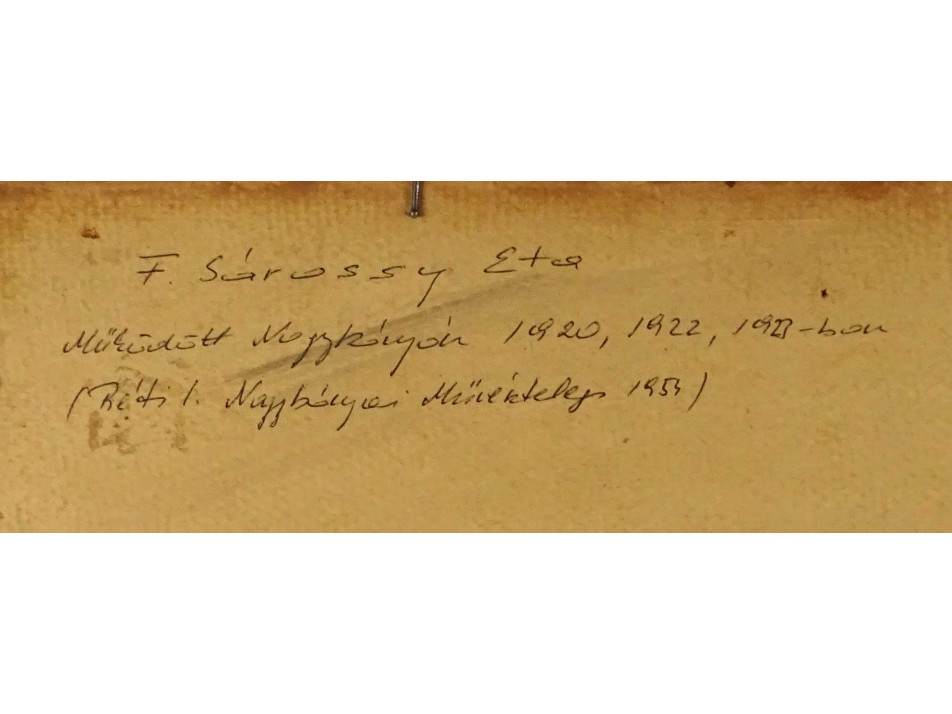 F. Sárossy Eta
Működött Nagybányán 1920, 1922, -ban
(Réti I. Nagybányai Művésztelep 1954)